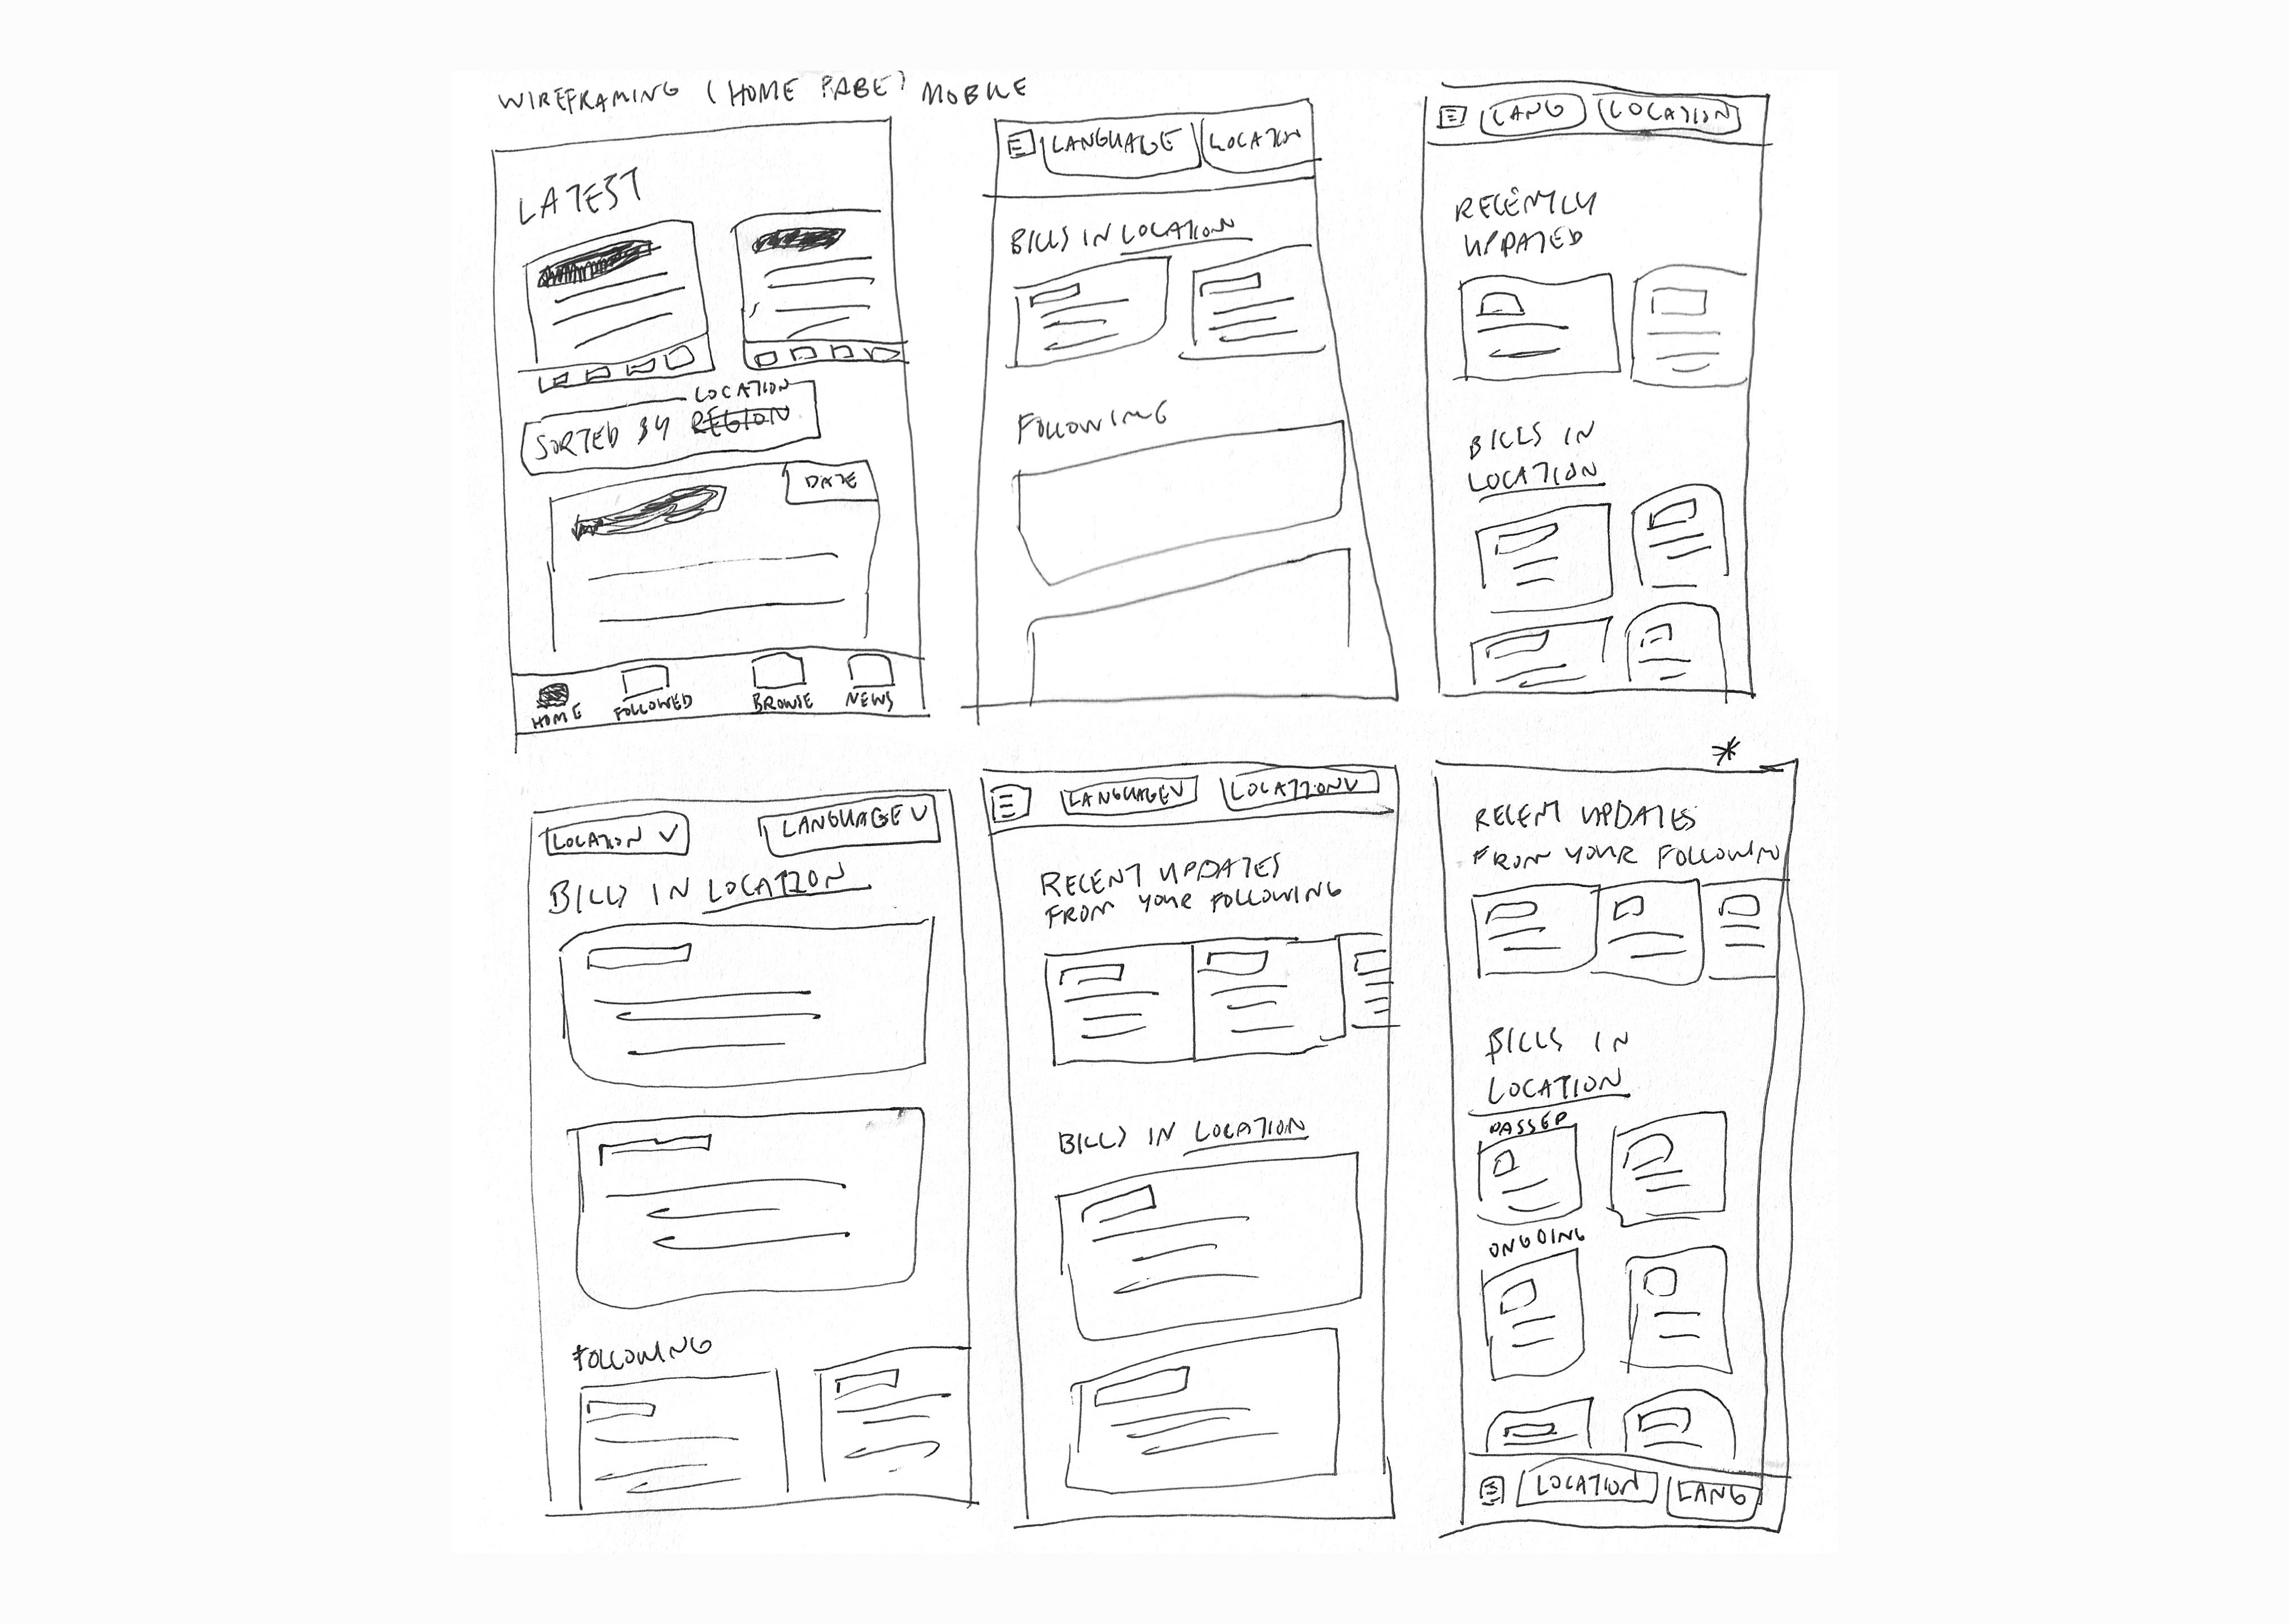 WIREFRAMING (HOME PAGE) MOBILE
LATEST
LOCATION
SORTED BY REGION
DATE
HOME FOLLOWED BROWSE NEWS
LANGUAGE LOCATION
BILLS IN LOCATION
FOLLOWING
LANG LOCATION
RECENTLY
UPDATED
BILLS IN
LOCATION
LOCATION V LANGUAGE V
BILLS IN LOCATION
FOLLOWING
LANGUAGE V LOCATION V
RECENT UPDATES
FROM YOUR FOLLOWING
BILLS IN LOCATION
*
RECENT UPDATES
FROM YOUR FOLLOWING
BILLS IN
LOCATION
PASSED
ONGOING
LOCATION LANG